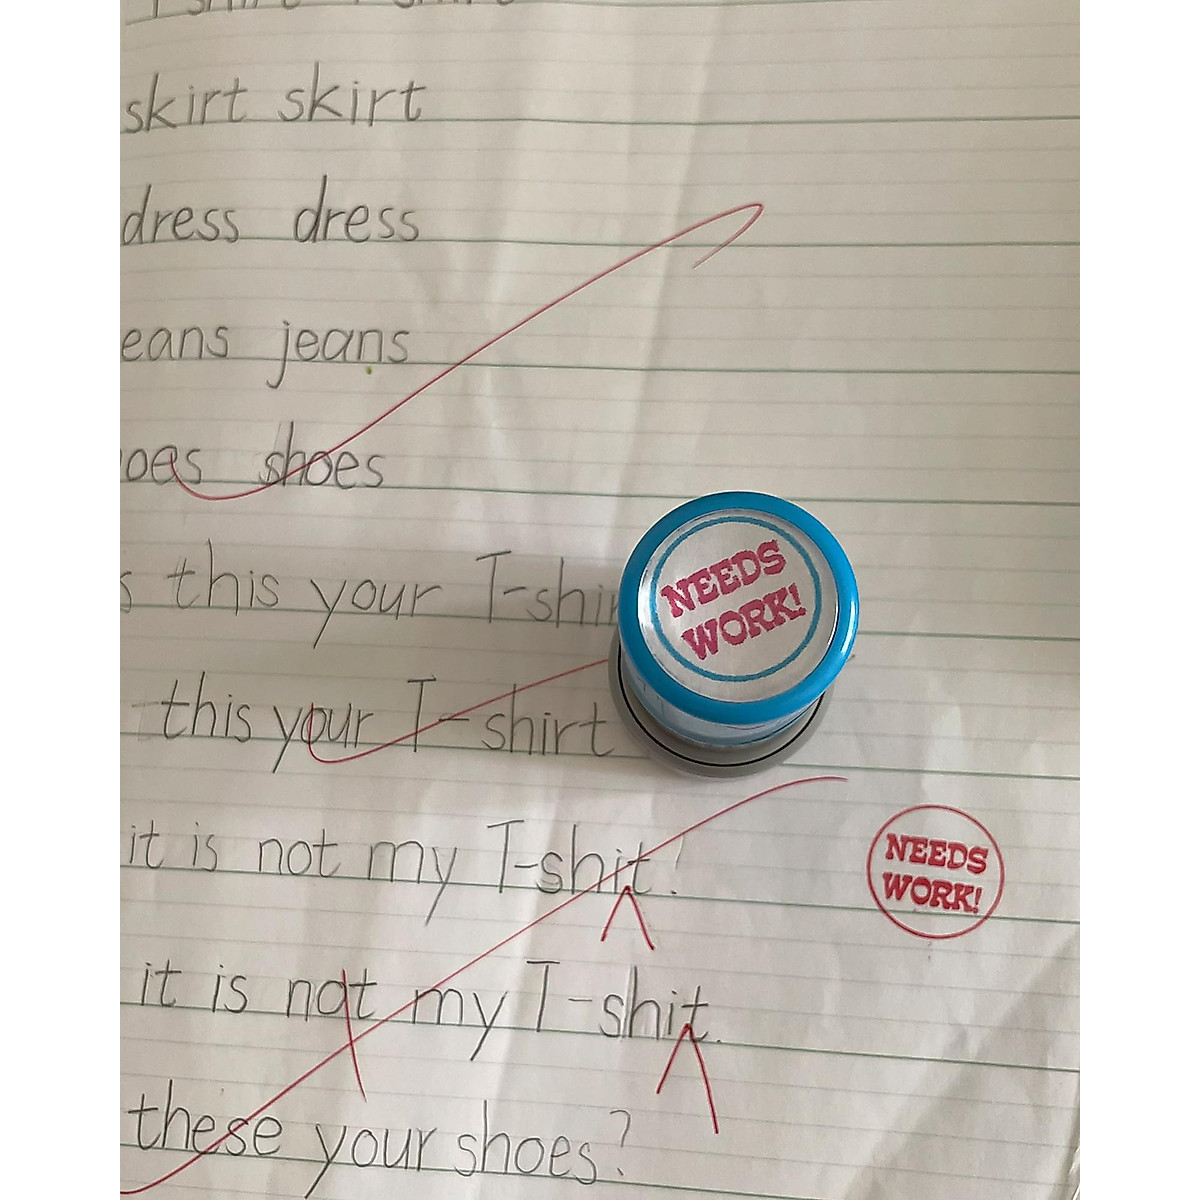 T-shirt T-shirt
skirt skirt
dress dress
eans jeans
oes shoes
s this your T-shir
this your T-shirt
NEEDS
WORK!
it is not my T-shit!
NEEDS
WORK!
it is not my T-shit.
these your shoes?